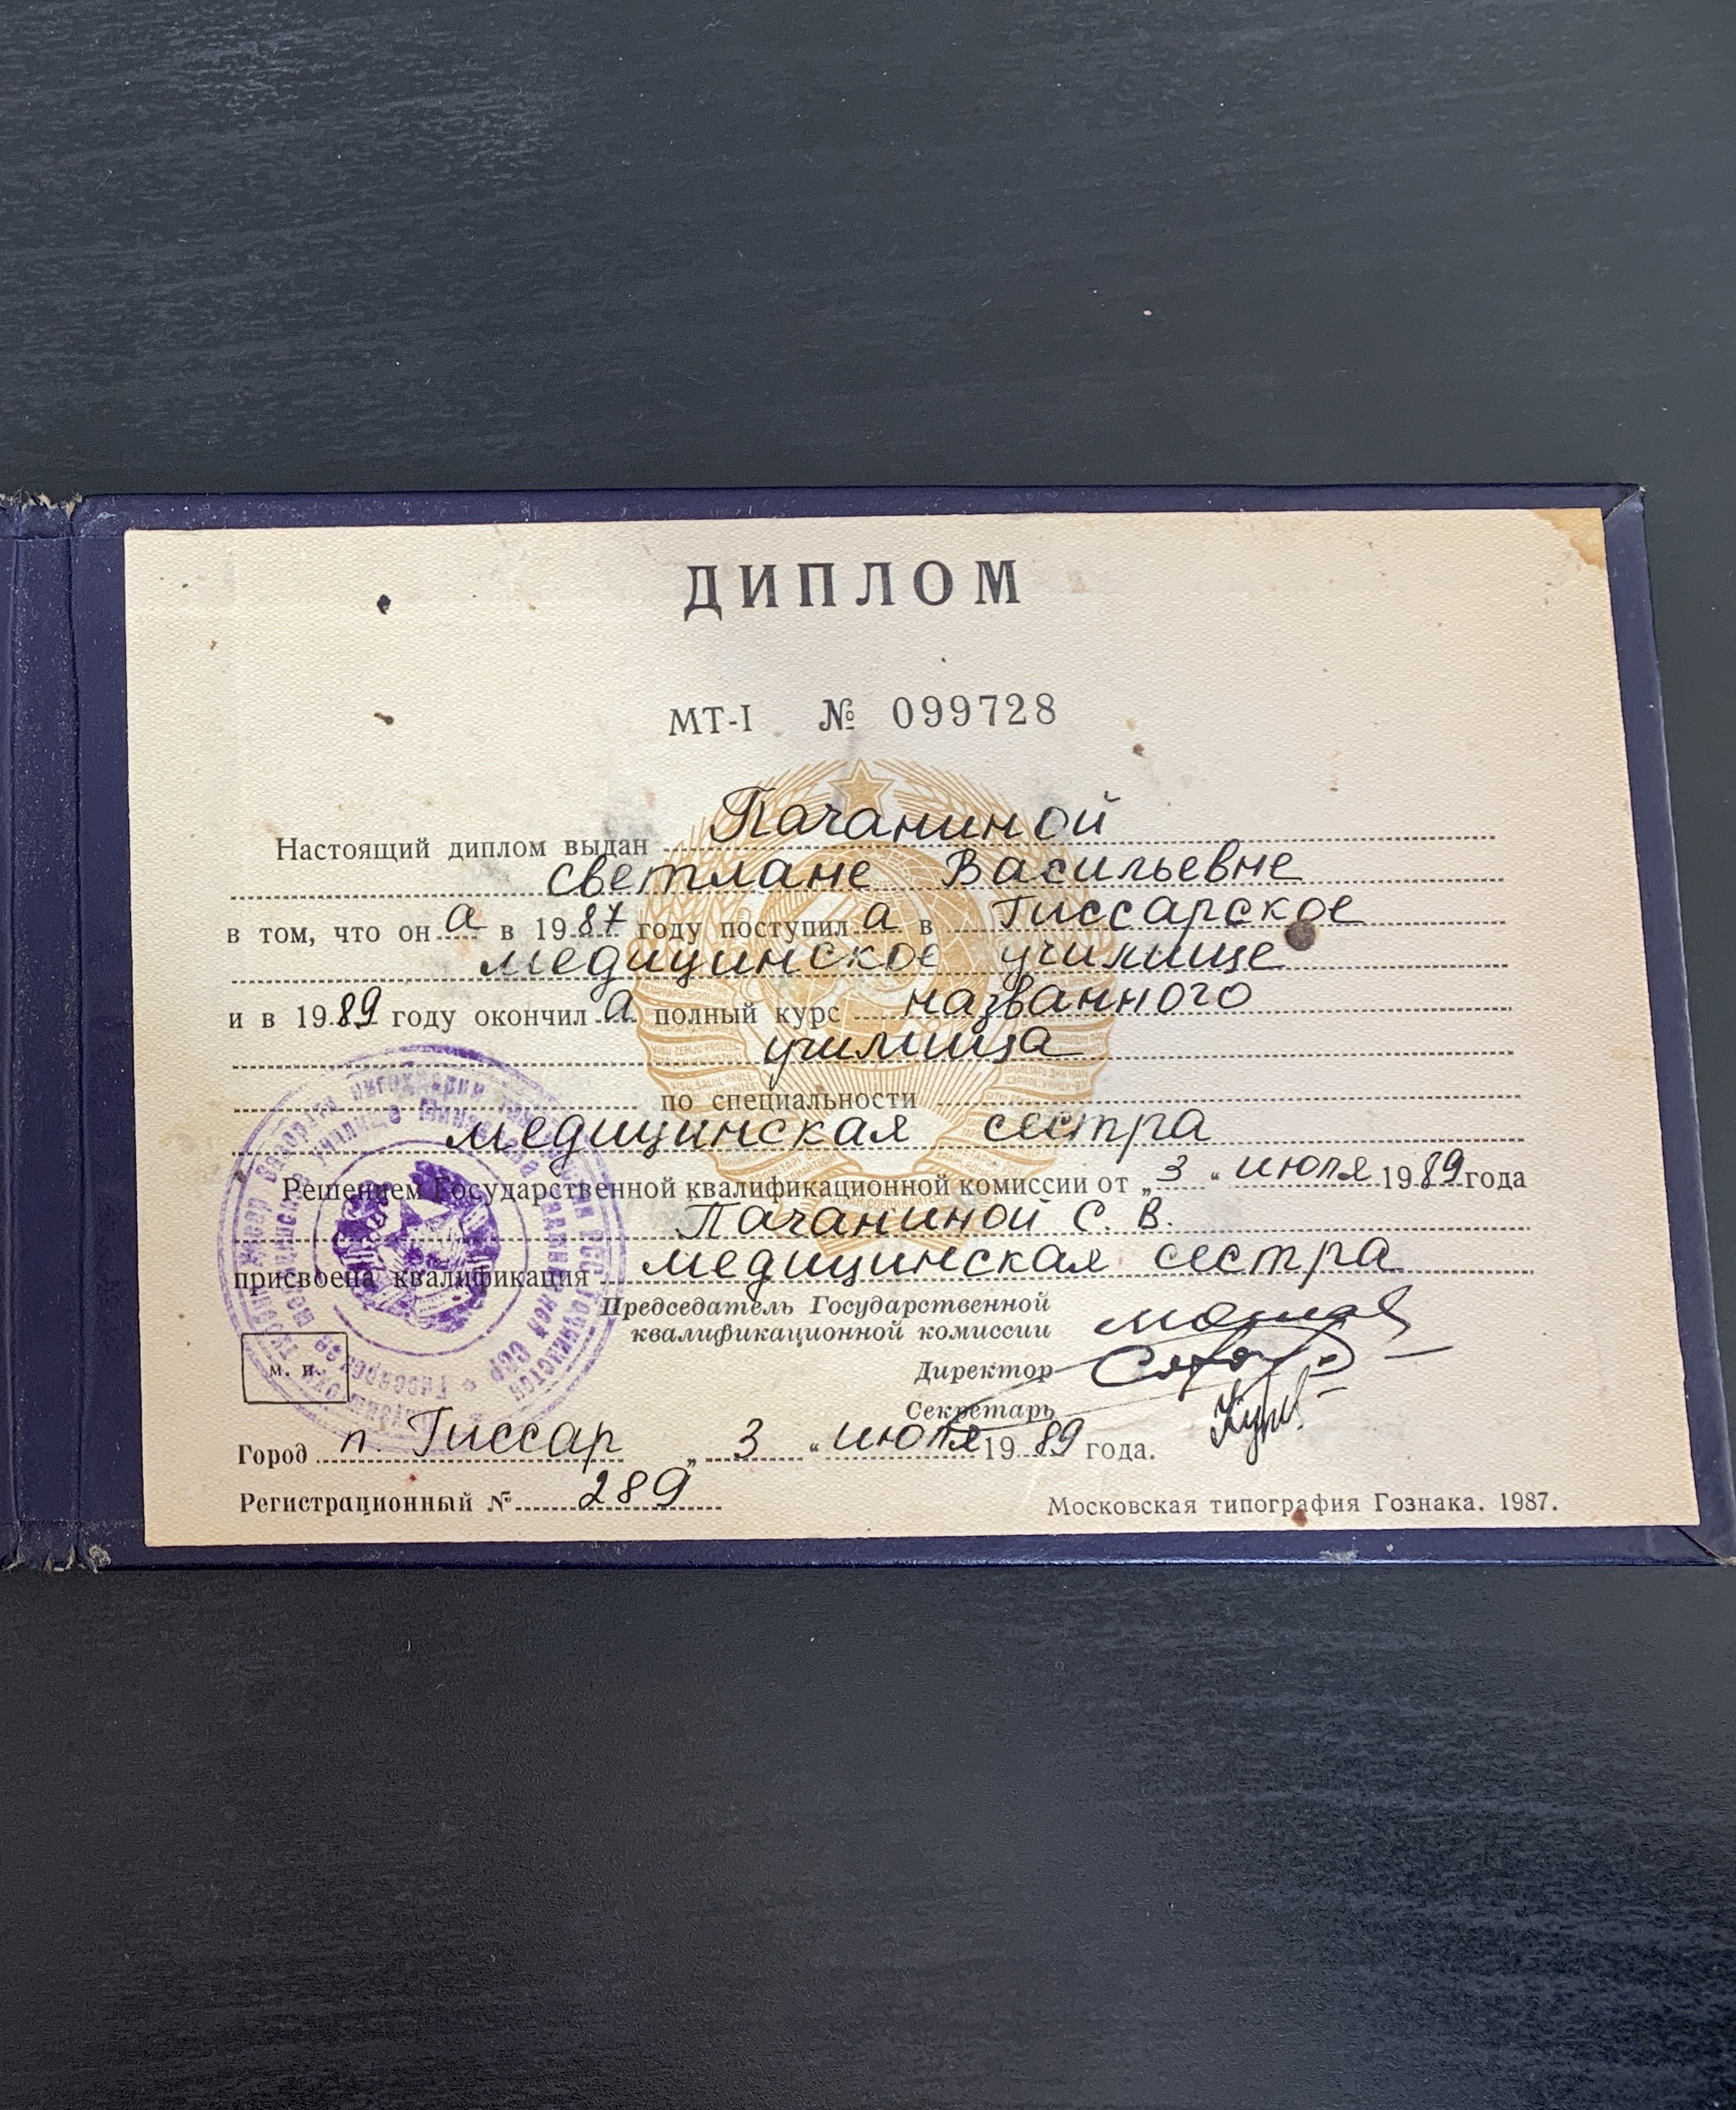 ДИПЛОМ
МТ-I № 099728
Настоящий диплом выдан Пачаниной
Светлане Васильевне
в том, что он а в 1987 году поступил а в Гиссарское
медицинское училище
и в 1989 году окончил а полный курс названного
училища
по специальности
медицинская сестра
Решением Государственной квалификационной комиссии от „3“ июля 1989 года
Пачаниной С. В.
присвоена квалификация медицинская сестра
Председатель Государственной
квалификационной комиссии
Директор
Секретарь
м. п.
Город п. Гиссар „3“ июля 1989 года.
Регистрационный № 289
Московская типография Гознака. 1987.